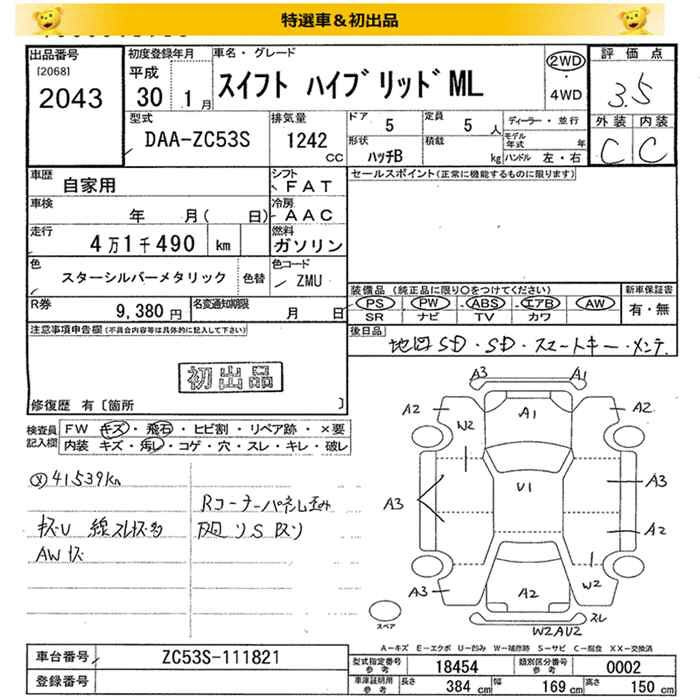 特選車＆初出品
出品番号 初度登録年月 車名・グレード 2WD 評価点
[2068] 平成 スイフト ハイブリッドML ・
2043 30 1月 4WD 3.5
型式 排気量 ドア 5 定員 5人 ディーラー・並行 外装 内装
DAA-ZC53S 1242 cc 形状 ハッチB 積載 kg モデル年式 年 ハンドル 左・右 C C
車歴 自家用 シフト FAT セールスポイント(正常に機能するものに限ります)
車検 年 月( 日) 冷房 AAC
走行 4万1千490 km 燃料 ガソリン
色 スターシルバーメタリック 色替 色コード ZMU
装備品 (純正品に限り○をつけてください) 新車保証書
R券 9,380円 名変通知期限 月 日 PS PW ABS エアB AW 有・無
SR ナビ TV カワ
注意事項申告欄(不具合内容等は具体的に記入して下さい) 後日品
地図SD・SD・スマートキー・メンテ.
初出品
修復歴 有〔箇所 〕
検査員記入欄 FW キズ・飛石・ヒビ割・リペア跡・×要
内装 キズ・汚レ・コゲ・穴・スレ・キレ・破レ
41539km
Rコーナーパネル歪み
キズU 線スレキズ多
AWキズ
A3 A1
A2 A1 A2
W2
A3 U1 A3
A2
A3 A2 W2
スペア W2AU2 スレ
A－キズ E－エクボ U－凹み W－補修跡 S－サビ C－腐食 XX－交換済
車台番号 ZC53S-111821 型式指定番号 参考 18454 類別区分番号 参考 0002
登録番号 車庫証明用 参考 長さ 384 cm 幅 169 cm 高さ 150 cm